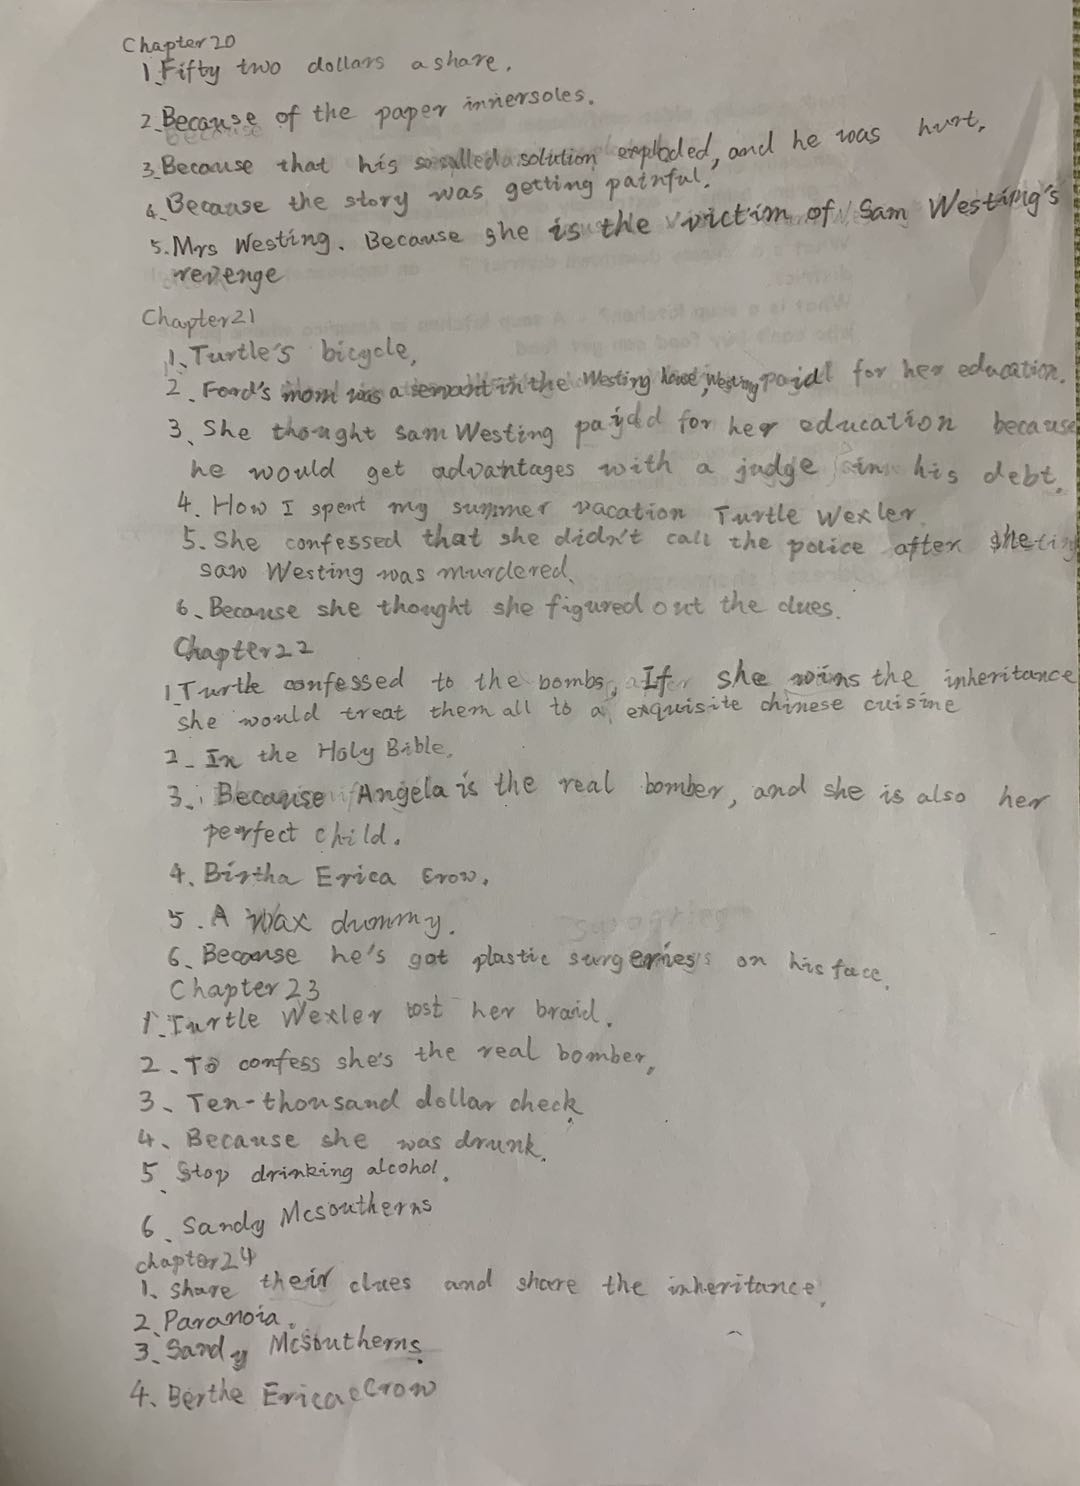 Chapter 20
1. Fifty two dollars a share.
2. Because of the paper innersoles.
3. Because that his so called solution exploded, and he was hurt.
4. Because the story was getting painful.
5. Mrs Westing. Because she is the victim of Sam Westing's
revenge
Chapter 21
1. Turtle's bicycle.
2. Ford's mom was a servant in the Westing house, Westing paid for her education.
3. She thought Sam Westing paid for her education because
he would get advantages with a judge in his debt.
4. How I spent my summer vacation Turtle Wexler.
5. She confessed that she didn't call the police after she
saw Westing was murdered.
6. Because she thought she figured out the clues.
Chapter 22
1 Turtle confessed to the bombs, If she wins the inheritance
she would treat them all to a exquisite chinese cuisine
2. In the Holy Bible.
3. Because Angela is the real bomber, and she is also her
perfect child.
4. Birtha Erica Crow.
5. A wax dummy.
6. Because he's got plastic surgeries on his face.
Chapter 23
1. Turtle Wexler lost her braid.
2. To confess she's the real bomber.
3. Ten-thousand dollar check.
4. Because she was drunk.
5. Stop drinking alcohol.
6. Sandy Mcsoutherns
chapter 24
1. share their clues and share the inheritance.
2. Paranoia.
3. Sandy Mcsoutherns.
4. Berthe Erica Crow